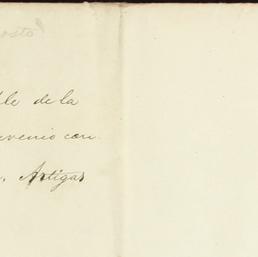 osto
le de la
venio con
Artigas